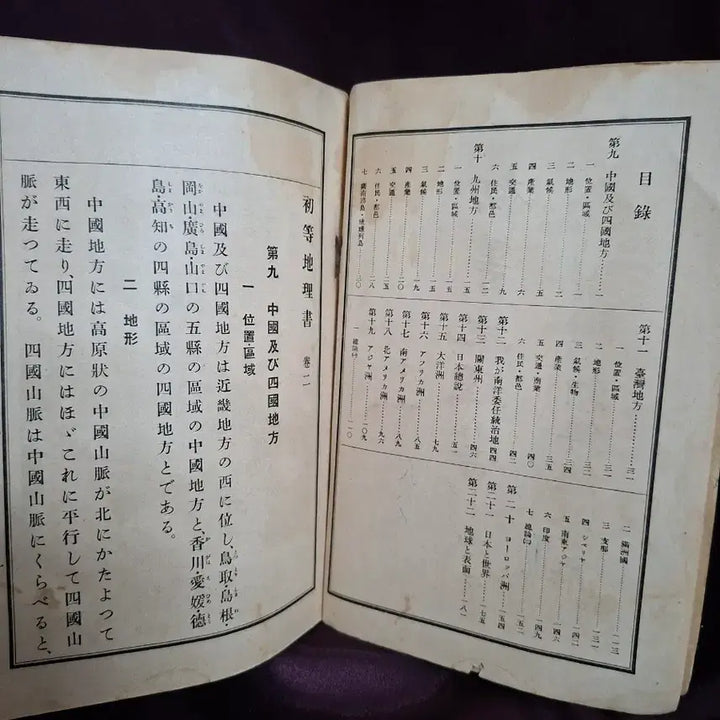 目錄
第九 中國及び四國地方……一
一 位置・區域……一
二 地形……二
三 氣候……三
四 產業……五
五 交通……九
六 住民・都邑
第十 九州地方……一五
一 位置・區域……一五
二 地形……一五
三 氣候
四 產業……二〇
五 交通
六 住民・都邑……二八
七 薩南諸島・琉球列島……三〇
第十一 臺灣地方……三一
一 位置・區域……三一
二 地形……三二
三 氣候・生物……三四
四 產業……三五
五 交通・商業……四〇
六 住民・都邑……四二
第十二 我が南洋委任統治地……四四
第十三 關東州……四六
第十四 日本總說……五一
第十五 大洋洲……七九
第十六 アフリカ洲……八五
第十七 南アメリカ洲……八九
第十八 北アメリカ洲……九六
第十九 アジヤ洲……一〇九
一 總論……一一〇
二 滿洲國……一一三
三 支那……一二一
四 シベリヤ……一四二
五 南東アジヤ……一四四
六 印度……一四六
七 總論……一四九
第二十 ヨーロッパ洲……一五四
第二十一 日本と世界……一七五
第二十二 地球と表面……一八一
初等地理書 卷二
第九 中國及び四國地方
一 位置・區域
中國及び四國地方は近畿地方の西に位し、鳥取・島根・
岡山・廣島・山口の五縣の區域の中國地方と、香川・愛媛・德
島・高知の四縣の區域の四國地方とである。
二 地形
中國地方には高原狀の中國山脈が北にかたよつて
東西に走り、四國地方にはほゞこれに平行して四國山
脈が走つてゐる。四國山脈は中國山脈にくらべると、